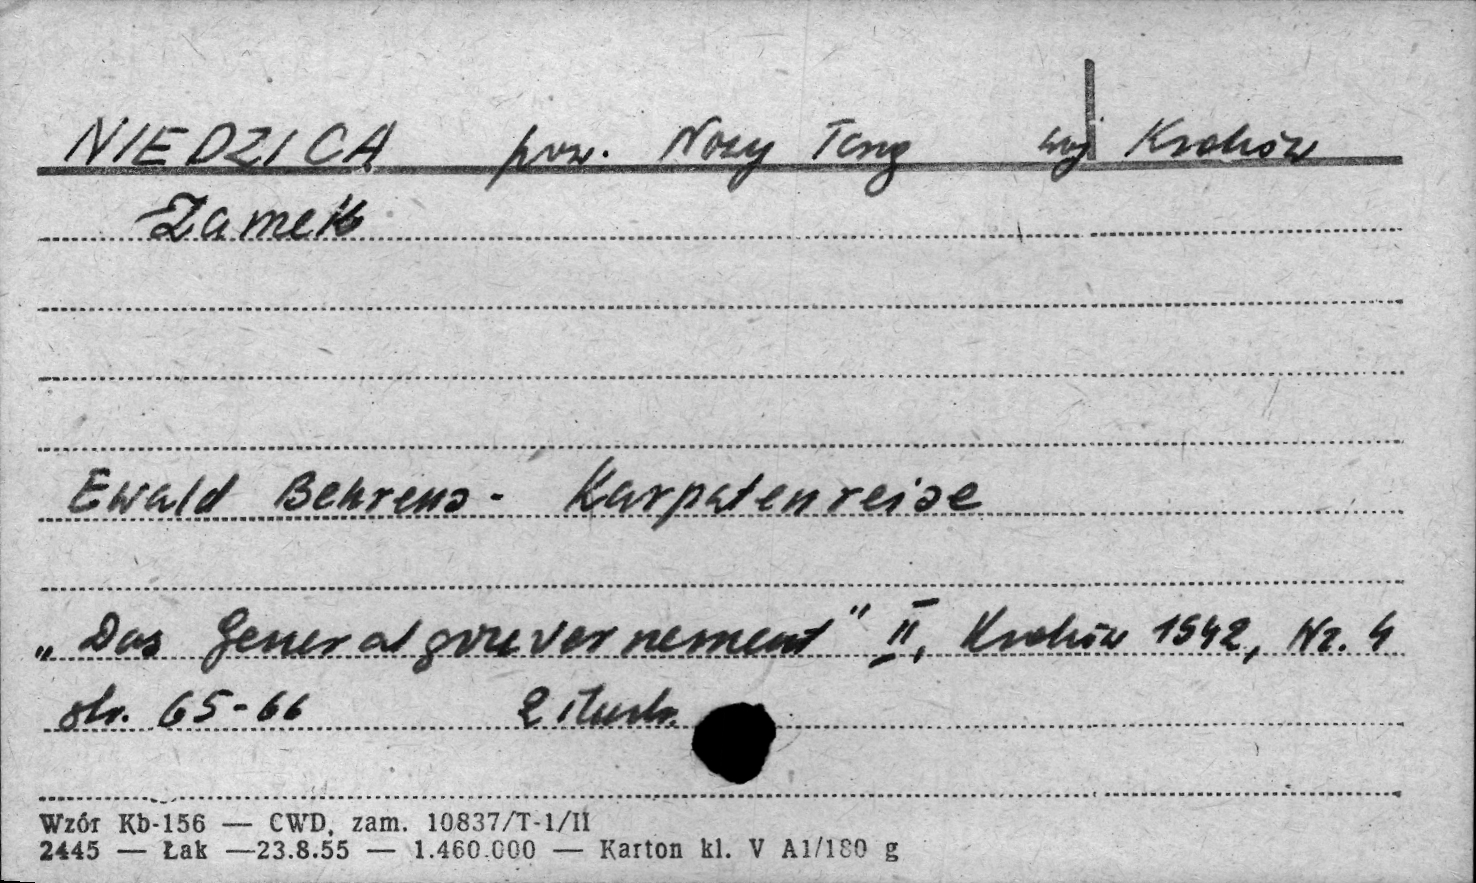 NIEDZICA pow. Nowy Targ woj Kraków
Zamek
Ewald Behrens - Karpatenreise
„Das Generalgouvernement" II, Kraków 1942, Nr. 4
str. 65-66 2 ilustr.
Wzór Kb-156 — CWD, zam. 10837/T-1/II
2445 — Łak —23.8.55 — 1.460.000 — Karton kl. V A1/180 g